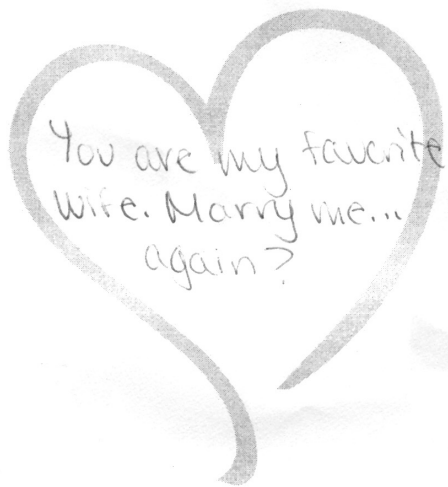 You are my favorite
wife. Marry me...
again?